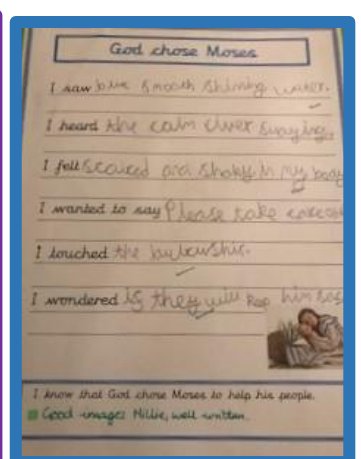 God chose Moses
I saw blue smooth shining water.
I heard the calm river swaying.
I felt scaired and shaky in my body
I wanted to say Please take care
I touched the
I wondered is they will keep him
I know that God chose Moses to help his people.
Good images Millie, well written.